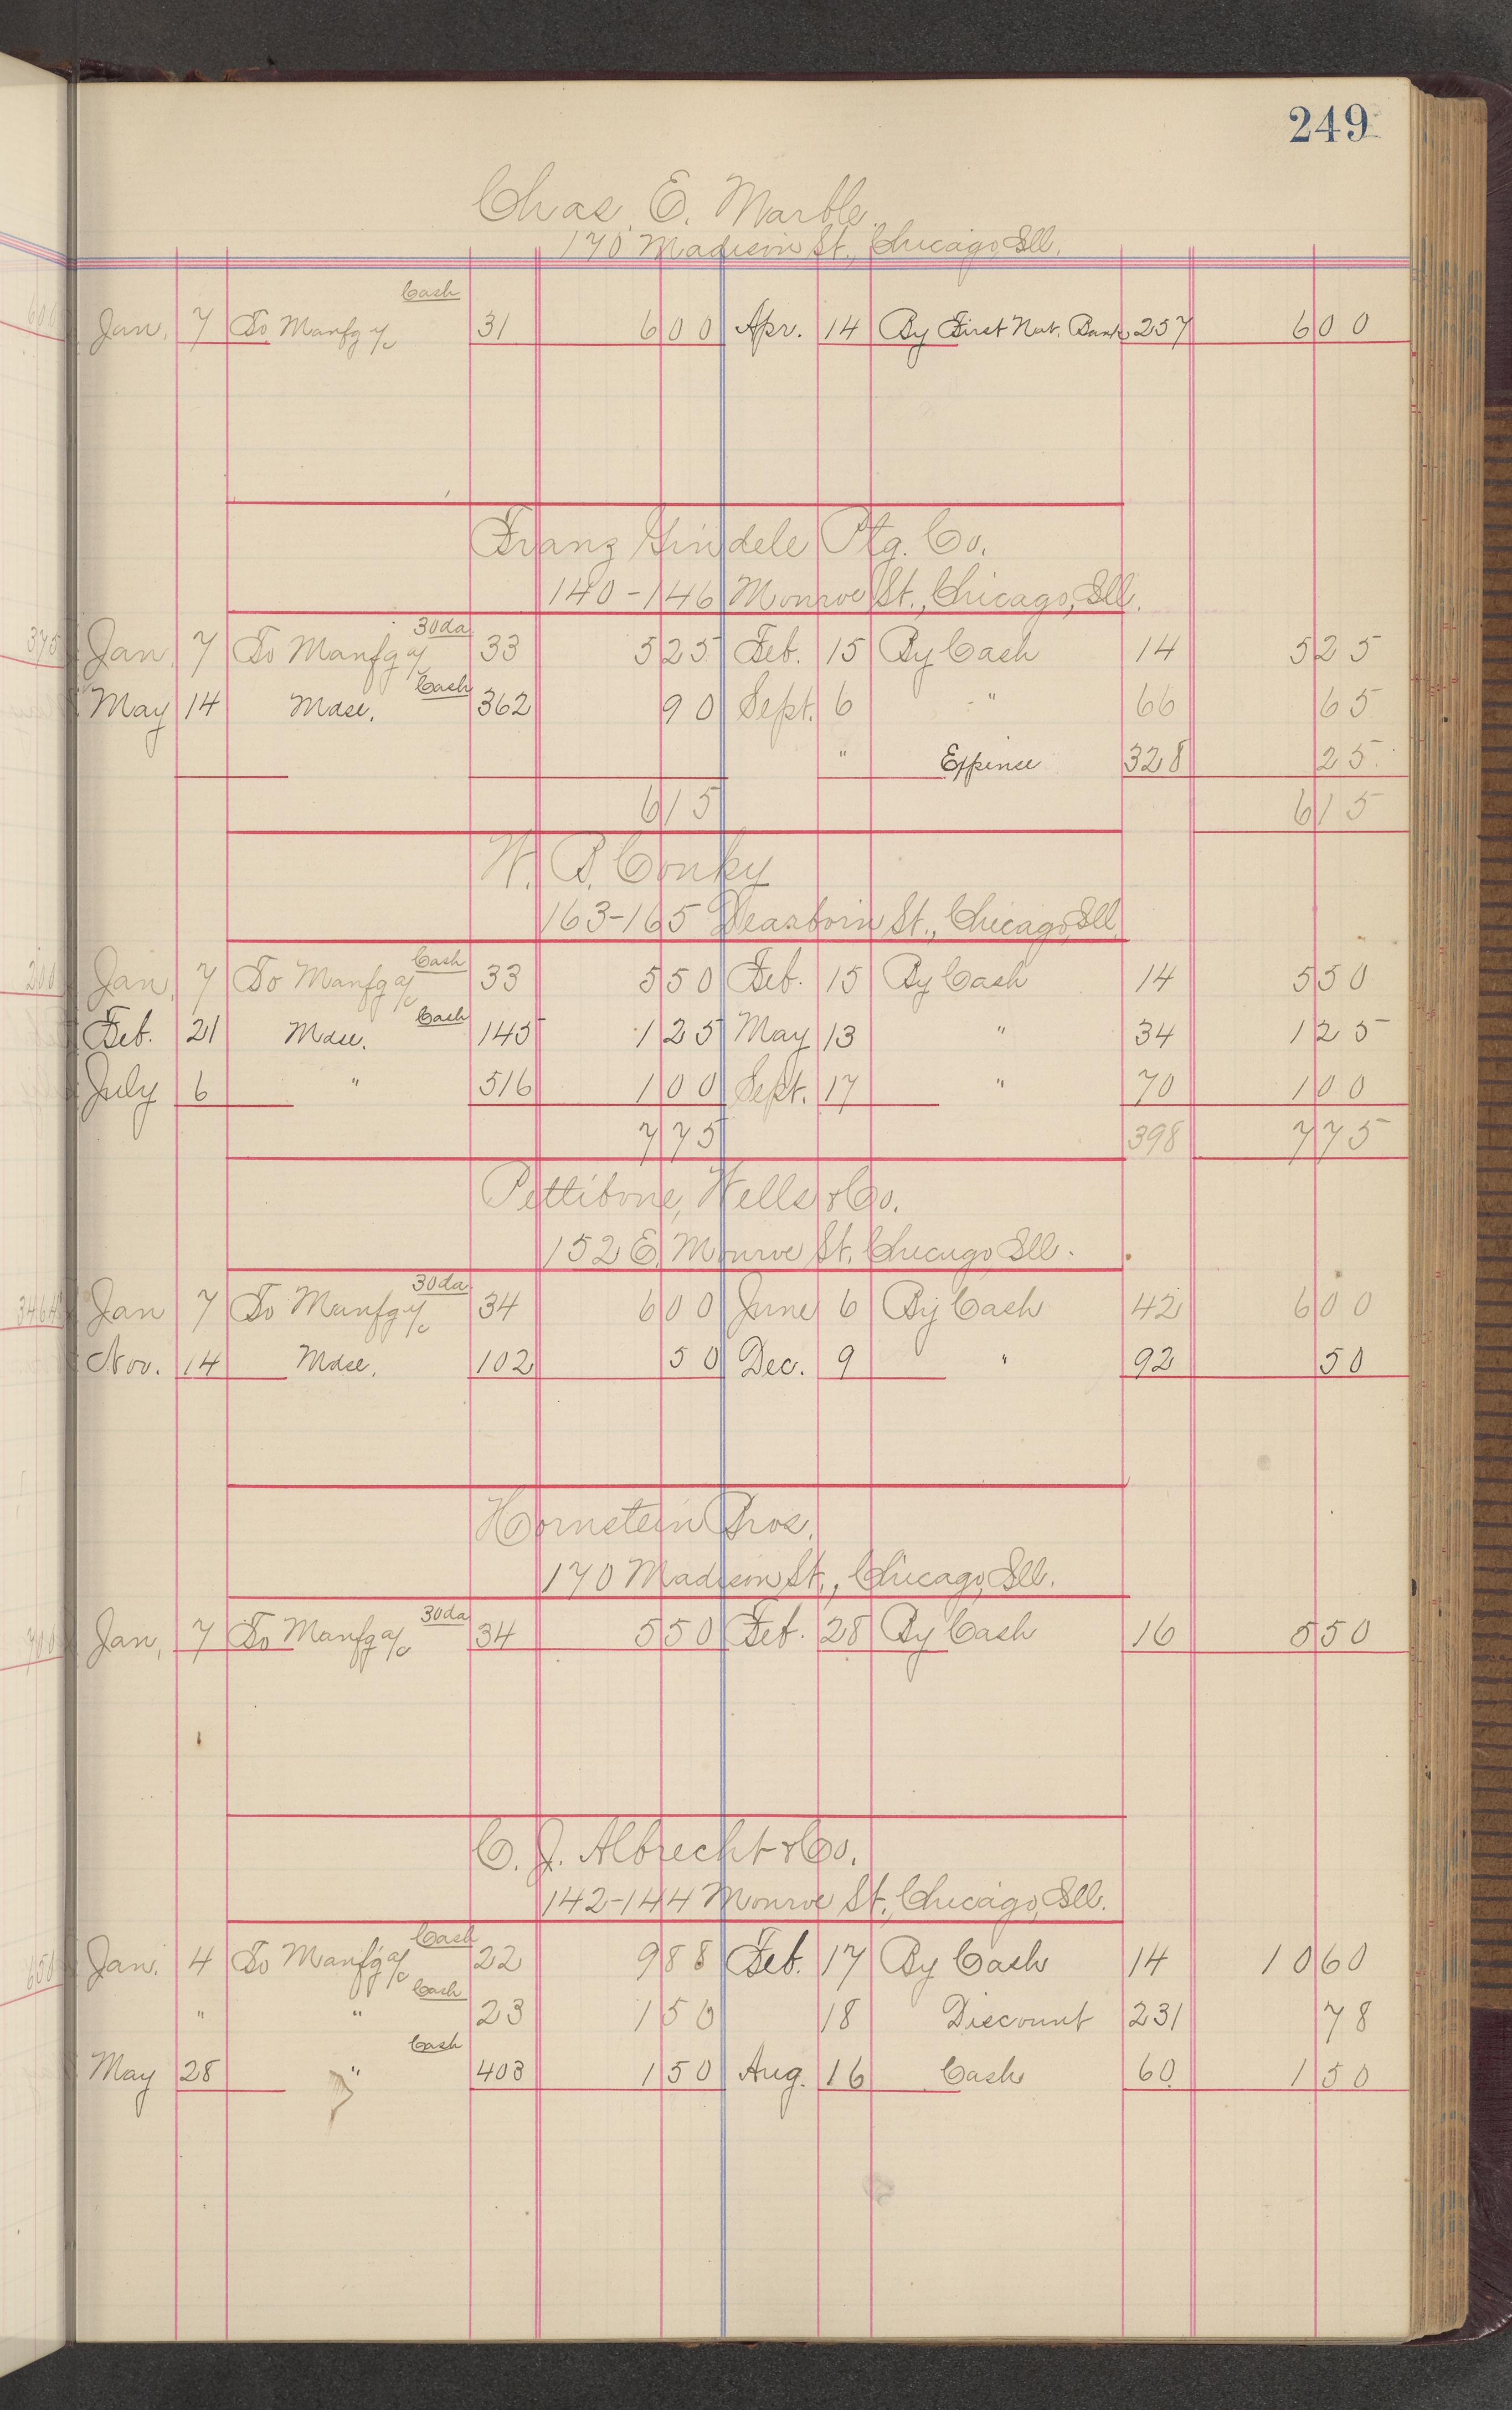 249
Chas. E. Marble.
170 Madison St., Chicago, Ill.
Cash
Jan. 7 To Manfg a/c 31 600 Apr. 14 By First Nat. Bank 257 600
Franz Gindele Ptg. Co.
140-146 Monroe St., Chicago, Ill.
30da
Jan. 7 To Manfg a/c 33 525 Feb. 15 By Cash 14 525
Cash
May 14 Mdse. 362 90 Sept. 6 " 66 65
" Expense 328 25
615 615
W. B. Conky
163-165 Dearborn St., Chicago, Ill.
Cash
Jan. 7 To Manfg a/c 33 550 Feb. 15 By Cash 14 550
Cash
Feb. 21 Mdse. 145 125 May 13 " 34 125
July 6 " 516 100 Sept. 17 " 70 100
775 398 775
Pettibone, Wells & Co.
152 E. Monroe St. Chicago, Ill.
30da
Jan 7 To Manfg a/c 34 600 June 6 By Cash 42 600
Nov. 14 Mdse. 102 50 Dec. 9 " 92 50
Hornstein Bros.
170 Madison St., Chicago, Ill.
30da
Jan. 7 To Manfg a/c 34 550 Feb. 28 By Cash 16 550
C. J. Albrecht & Co.
142-144 Monroe St., Chicago, Ill.
Cash
Jan. 4 To Manfg a/c 22 988 Feb. 17 By Cash 14 1060
Cash
" " 23 150 18 Discount 231 78
Cash
May 28 " 403 150 Aug. 16 Cash 60 150